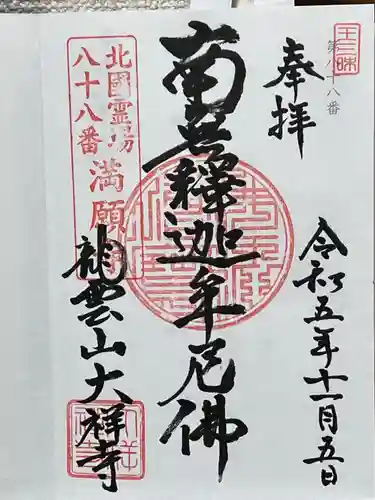 王三昧
第八十八番
奉拝
令和五年十一月五日
南無釋迦牟尼佛
北國霊場
八十八番
満願
龍雲山大祥寺